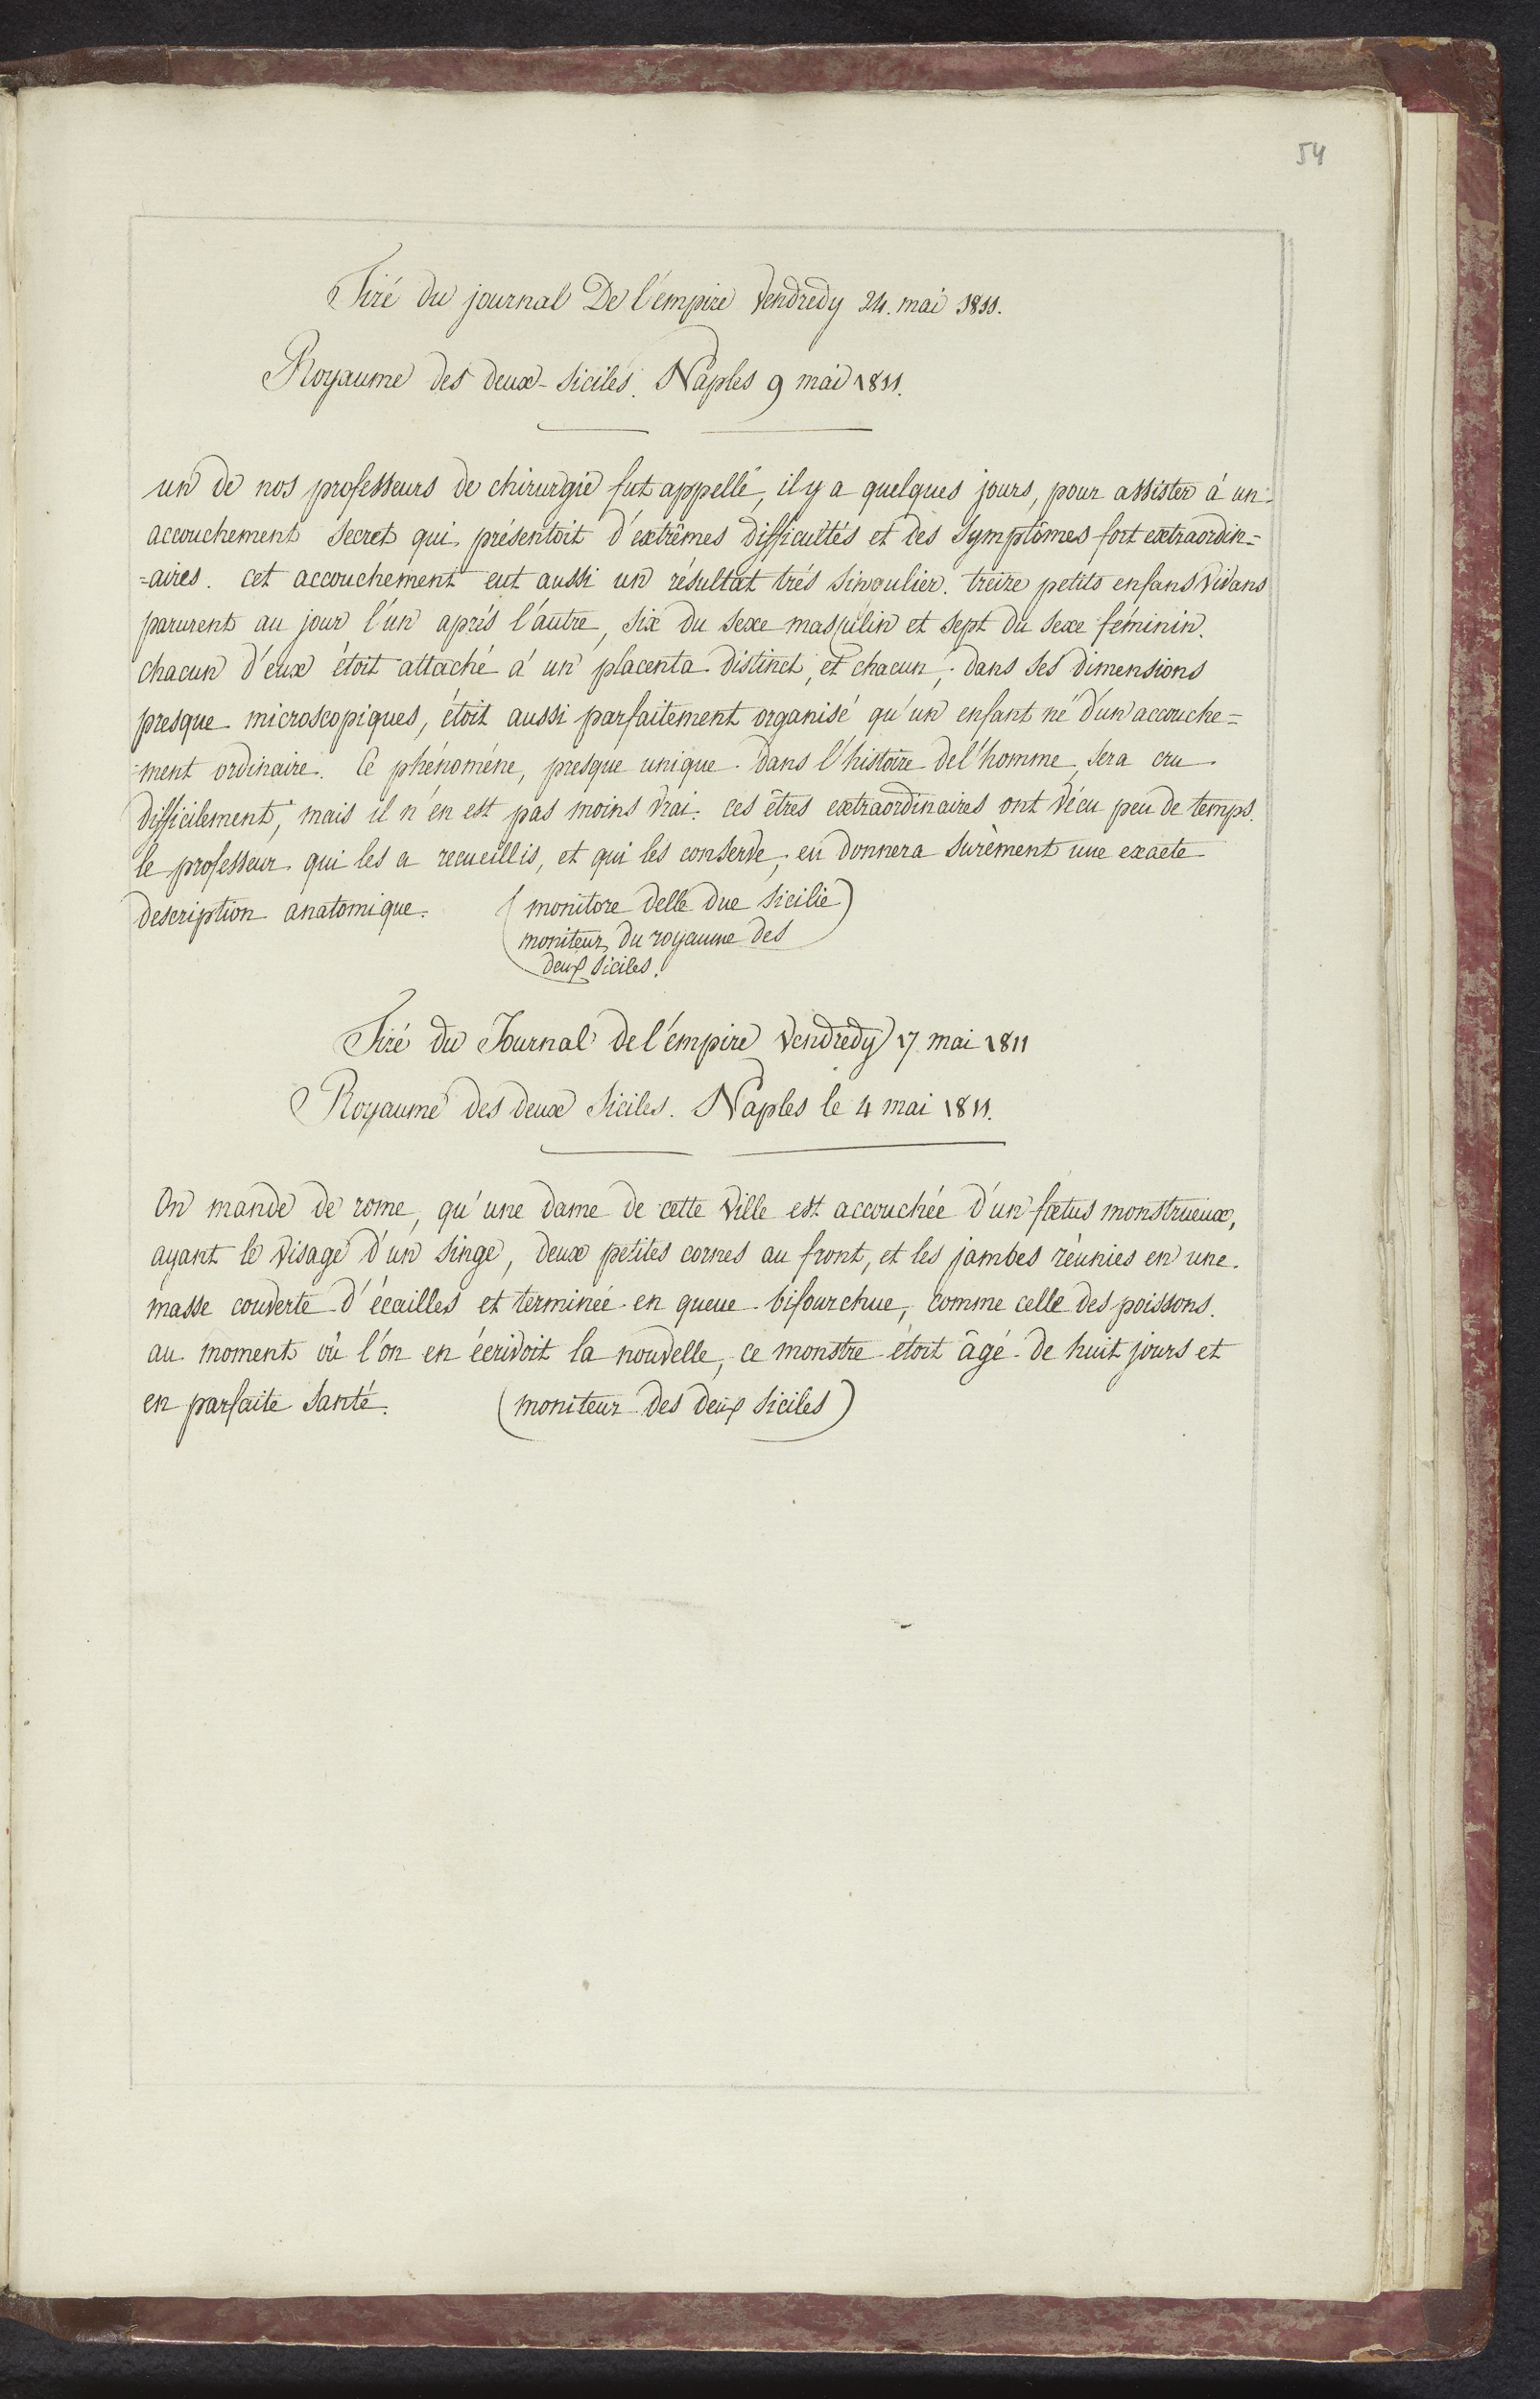 54
Tiré du journal De l'émpire Vendredy 24. mai 1811.
Royaume des deux-siciles. Naples 9 mai 1811.
un de nos professeurs de chirurgie fut appellé, il y a quelques jours, pour assister à un
accouchement secret qui présentoit d'extrêmes difficultés et des symptômes fort extraordin=
=aires. cet accouchement eut aussi un résultat trés singulier. treize petits enfans vivans
parurent au jour l'un aprés l'autre, six du sexe masculin et sept du sexe féminin.
chacun d'eux étoit attaché à un placenta distinct, et chacun, dans ses dimensions
presque microscopiques, étoit aussi parfaitement organisé qu'un enfant né d'un accouche=
=ment ordinaire. Ce phénoméne, presque unique dans l'histoire de l'homme, sera cru
difficilement, mais il n'en est pas moins vrai. ces êtres extraordinaires ont vécu peu de temps.
le professeur qui les a recueillis, et qui les conserve, en donnera surèment une exacte
description anatomique. (monitore delle due sicilie)
moniteur du royaume des
deux siciles.
Tiré du Journal de l'émpire Vendredy 17 mai 1811
Royaume des deux siciles. Naples le 4 mai 1811.
On mande de rome, qu'une dame de cette ville est accouchée d'un fœtus monstrueux,
ayant le visage d'un singe, deux petites cornes au front, et les jambes réunies en une
masse couverte d'écailles et terminée en queue bifourchue, comme celle des poissons.
au moment où l'on en écrivoit la nouvelle, ce monstre étoit âgé de huit jours et
en parfaite santé. (moniteur des deux siciles)